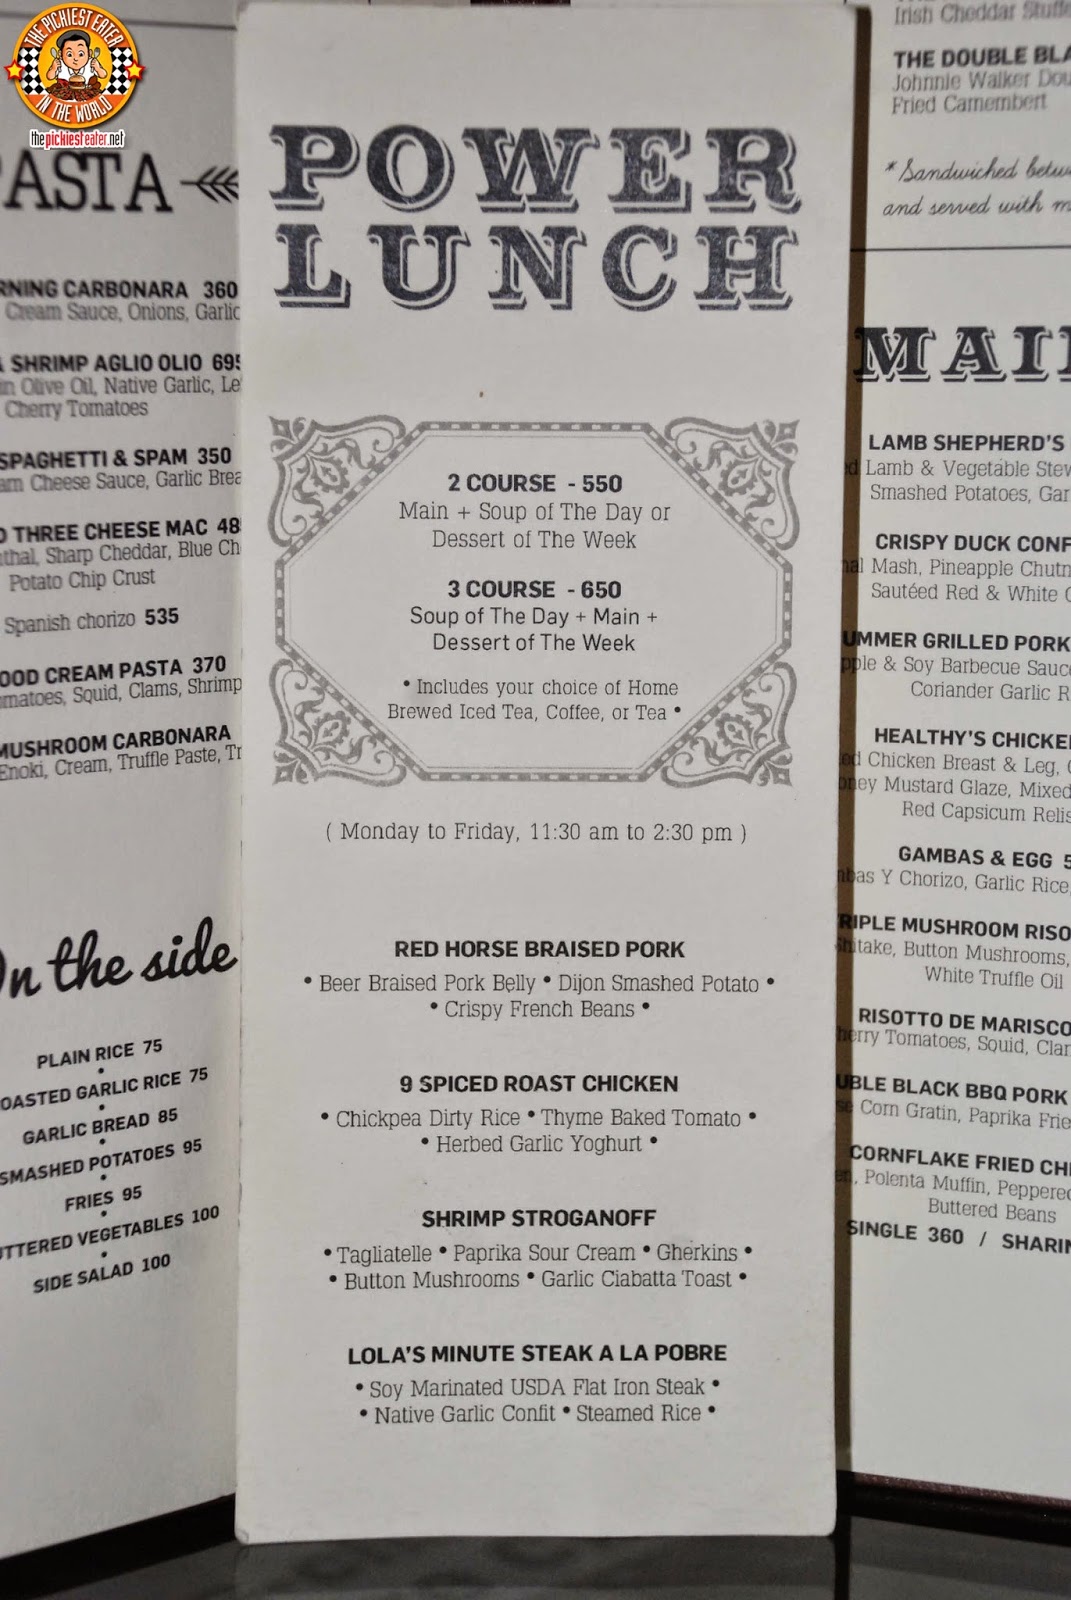 THE PICKIEST EATER
IN THE WORLD
thepickiesteater.net
PASTA
CARBONARA 360
Cream Sauce, Onions, Garlic
SHRIMP AGLIO OLIO 695
in Olive Oil, Native Garlic,
Cherry Tomatoes
SPAGHETTI & SPAM 350
Cheese Sauce, Garlic
THREE CHEESE MAC
Sharp Cheddar, Blue
Potato Chip Crust
Spanish chorizo 535
CREAM PASTA 370
Squid, Clams, Shrimp
MUSHROOM CARBONARA
Enoki, Cream, Truffle Paste,
On the side
PLAIN RICE 75
GARLIC RICE 75
GARLIC BREAD 85
SMASHED POTATOES 95
FRIES 95
VEGETABLES 100
SIDE SALAD 100
POWER
LUNCH
2 COURSE - 550
Main + Soup of The Day or
Dessert of The Week
3 COURSE - 650
Soup of The Day + Main +
Dessert of The Week
• Includes your choice of Home
Brewed Iced Tea, Coffee, or Tea •
( Monday to Friday, 11:30 am to 2:30 pm )
RED HORSE BRAISED PORK
• Beer Braised Pork Belly • Dijon Smashed Potato •
• Crispy French Beans •
9 SPICED ROAST CHICKEN
• Chickpea Dirty Rice • Thyme Baked Tomato •
• Herbed Garlic Yoghurt •
SHRIMP STROGANOFF
• Tagliatelle • Paprika Sour Cream • Gherkins •
• Button Mushrooms • Garlic Ciabatta Toast •
LOLA'S MINUTE STEAK A LA POBRE
• Soy Marinated USDA Flat Iron Steak •
• Native Garlic Confit • Steamed Rice •
Irish Cheddar
THE DOUBLE
Johnnie Walker
Fried Camembert
* Sandwiched
and served with
LAMB SHEPHERD'S
Lamb & Vegetable
Smashed Potatoes,
CRISPY DUCK
Mash, Pineapple
Sautéed Red & White
GRILLED PORK
& Soy Barbecue Sauce
Coriander Garlic
HEALTHY'S
Chicken Breast & Leg,
Mustard Glaze, Mixed
Red Capsicum
GAMBAS & EGG
Y Chorizo, Garlic Rice,
MUSHROOM
Button Mushrooms,
White Truffle Oil
RISOTTO DE
Tomatoes, Squid,
BLACK BBQ PORK
Corn Gratin, Paprika
CORNFLAKE FRIED
Polenta Muffin,
Buttered Beans
SINGLE 360 /